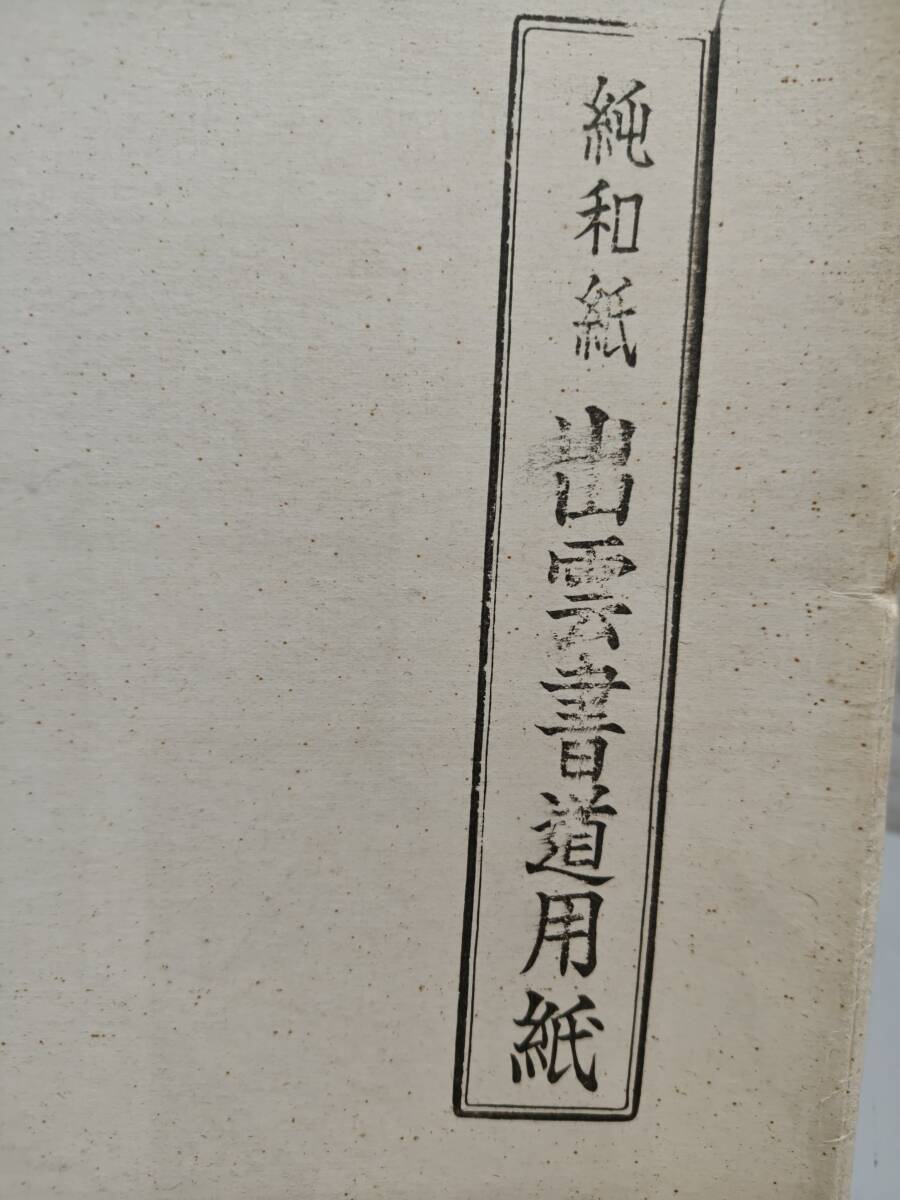 純和紙 出雲書道用紙